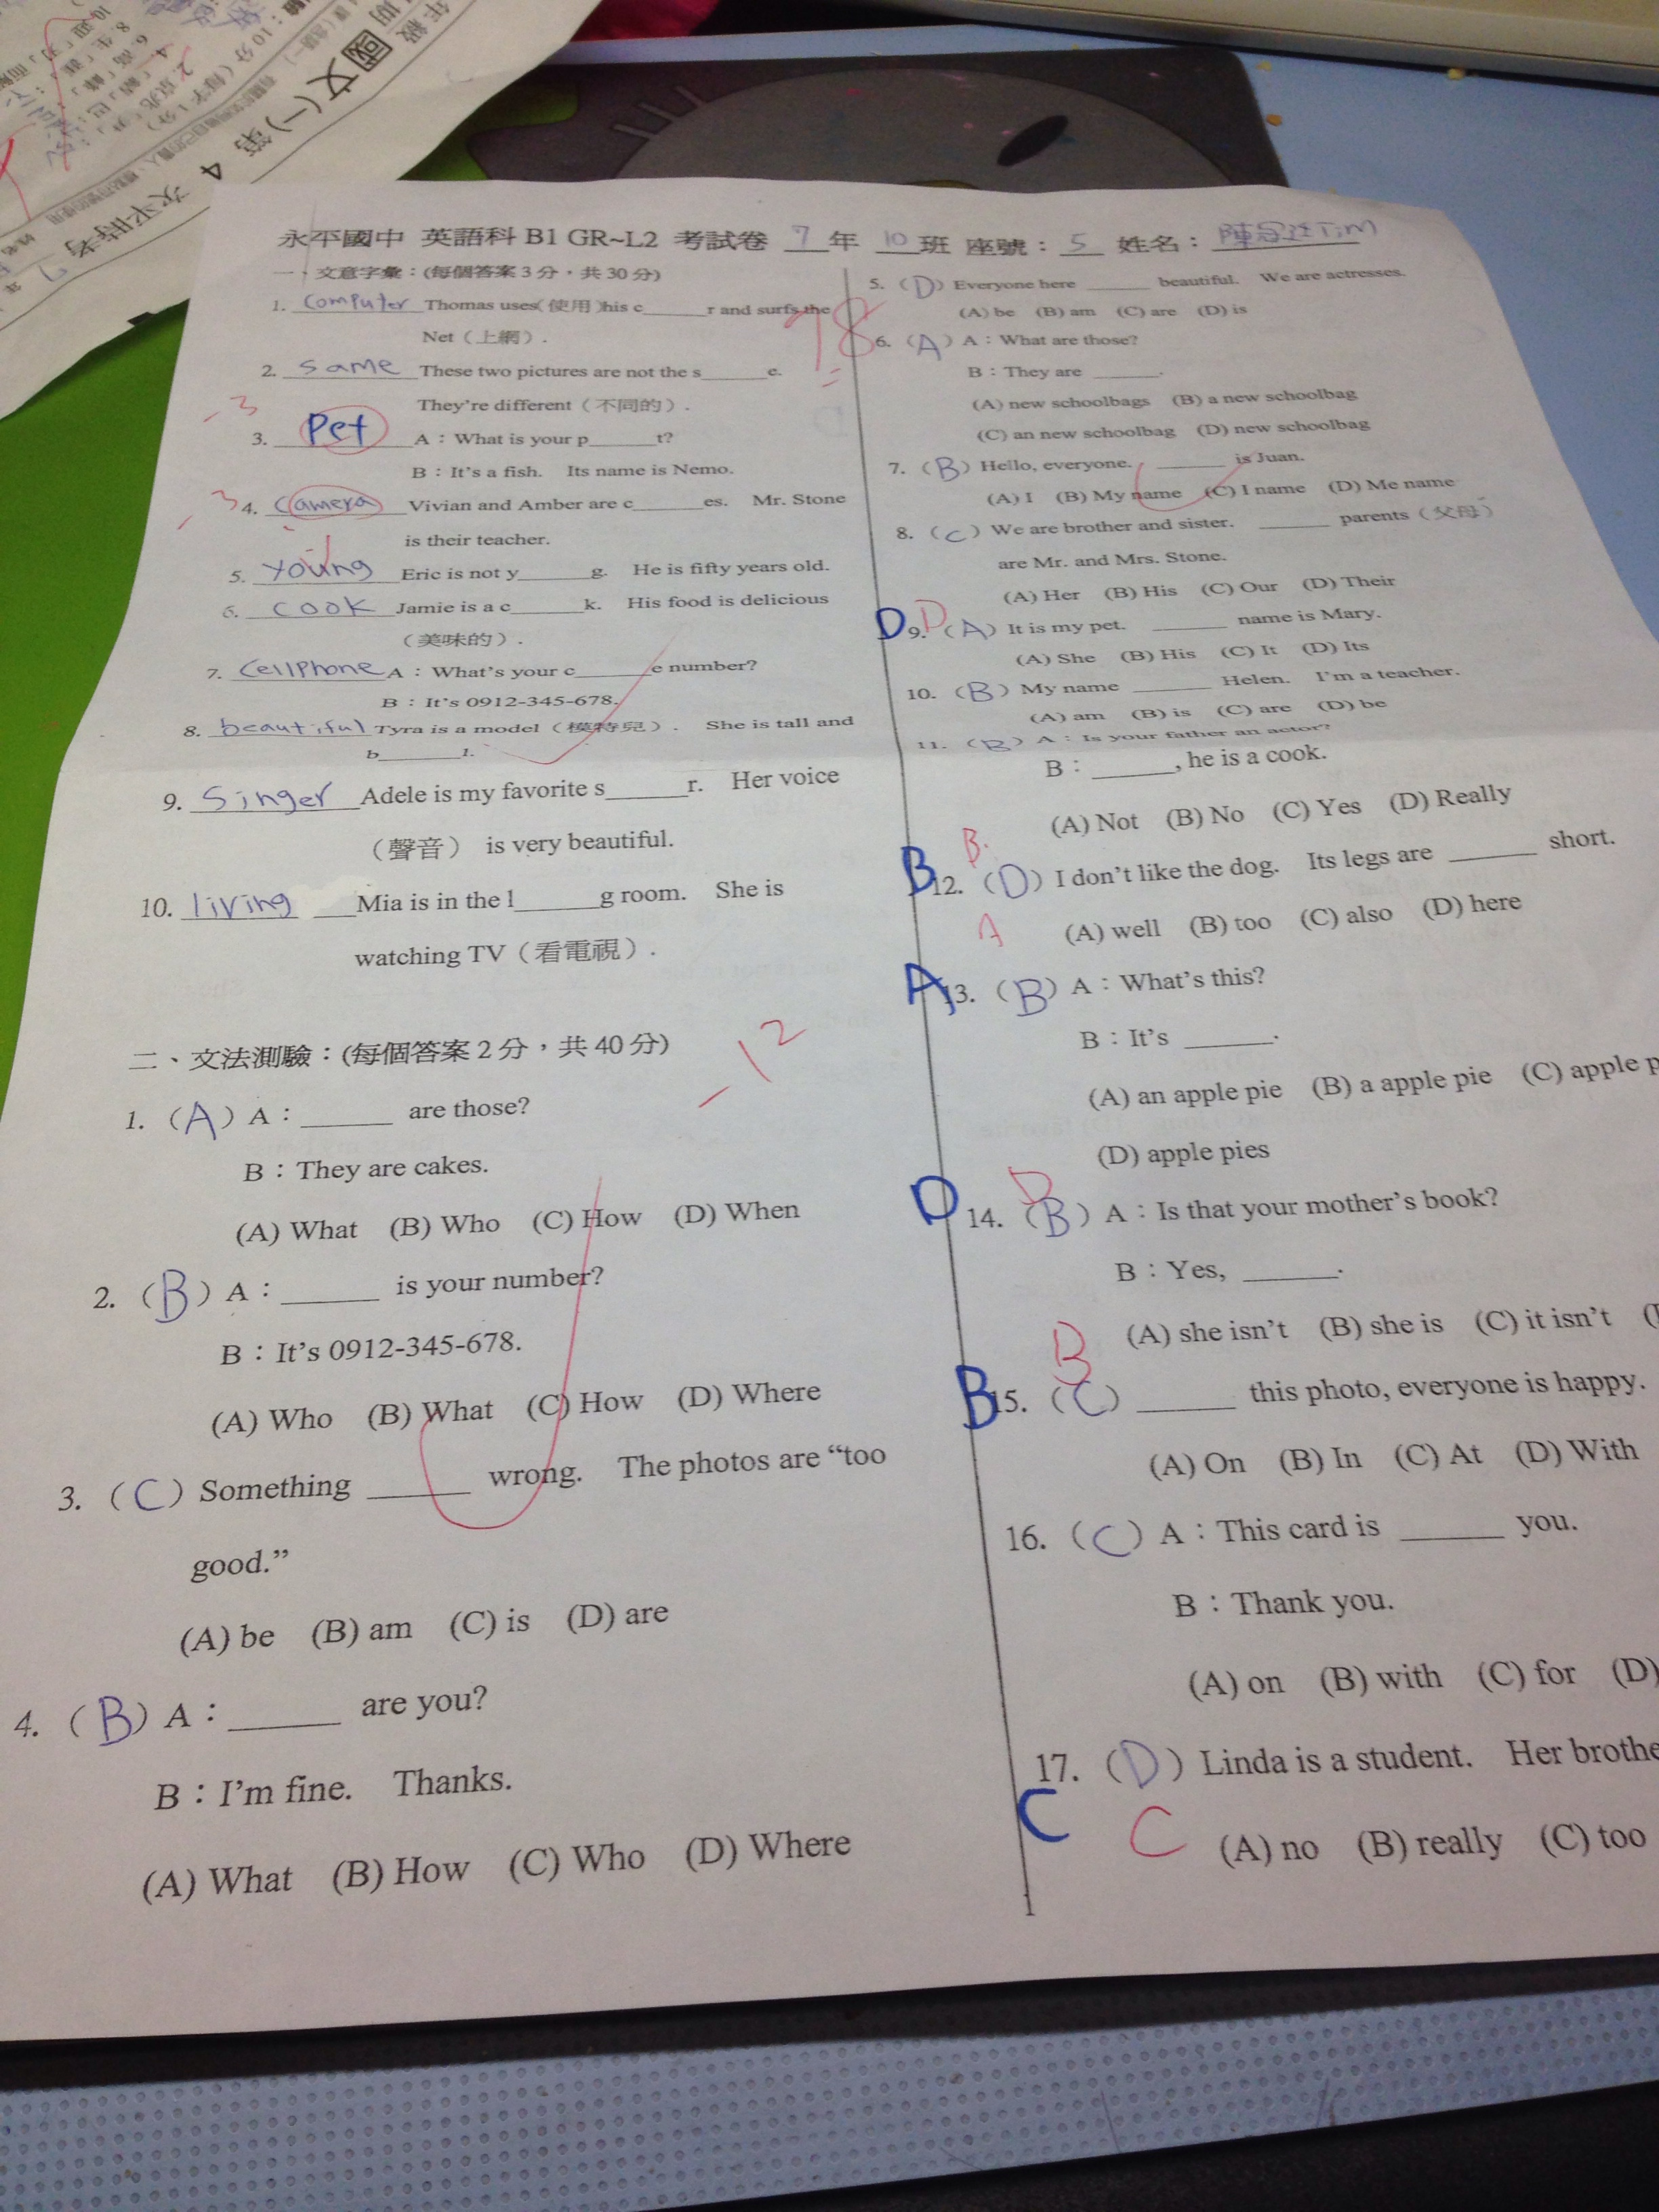 永平國中 英語科 B1 GR~L2 考試卷 7 年 10 班 座號：5 姓名：陳 Tim
一、文意字彙：(每個答案 3 分，共 30 分)
1. computer Thomas uses(使用)his c______r and surfs the
Net（上網）.
2. same These two pictures are not the s______e.
They're different（不同的）.
-3
3. Pet A：What is your p______t?
B：It's a fish. Its name is Nemo.
-3
4. Camera Vivian and Amber are c______es. Mr. Stone
is their teacher.
5. young Eric is not y______g. He is fifty years old.
6. cook Jamie is a c______k. His food is delicious
（美味的）.
7. cellphone A：What's your c______e number?
B：It's 0912-345-678.
8. beautiful Tyra is a model（模特兒）. She is tall and
b______l.
9. Singer Adele is my favorite s______r. Her voice
（聲音） is very beautiful.
10. living Mia is in the l______g room. She is
watching TV（看電視）.
-12
二、文法測驗：(每個答案 2 分，共 40 分)
1. (A) A：______ are those?
B：They are cakes.
(A) What (B) Who (C) How (D) When
2. (B) A：______ is your number?
B：It's 0912-345-678.
(A) Who (B) What (C) How (D) Where
3. (C) Something ______ wrong. The photos are “too
good.”
(A) be (B) am (C) is (D) are
4. (B) A：______ are you?
B：I'm fine. Thanks.
(A) What (B) How (C) Who (D) Where
78
5. (D) Everyone here ______ beautiful. We are actresses.
(A) be (B) am (C) are (D) is
6. (A) A：What are those?
B：They are ______.
(A) new schoolbags (B) a new schoolbag
(C) an new schoolbag (D) new schoolbag
7. (B) Hello, everyone. ______ is Juan.
(A) I (B) My name (C) I name (D) Me name
8. (C) We are brother and sister. ______ parents（父母）
are Mr. and Mrs. Stone.
(A) Her (B) His (C) Our (D) Their
D D
9. (A) It is my pet. ______ name is Mary.
(A) She (B) His (C) It (D) Its
10. (B) My name ______ Helen. I'm a teacher.
(A) am (B) is (C) are (D) be
11. (B) A：Is your father an actor?
B：______, he is a cook.
(A) Not (B) No (C) Yes (D) Really
B B.
12. (D) I don't like the dog. Its legs are ______ short.
(A) well (B) too (C) also (D) here
A A
13. (B) A：What's this?
B：It's ______.
(A) an apple pie (B) a apple pie (C) apple p
(D) apple pies
D D
14. (B) A：Is that your mother's book?
B：Yes, ______.
(A) she isn't (B) she is (C) it isn't (
B B
15. (C) ______ this photo, everyone is happy.
(A) On (B) In (C) At (D) With
16. (C) A：This card is ______ you.
B：Thank you.
(A) on (B) with (C) for (D)
17. (D) Linda is a student. Her brothe
C C
(A) no (B) really (C) too
國文(一)第 4 次平時考